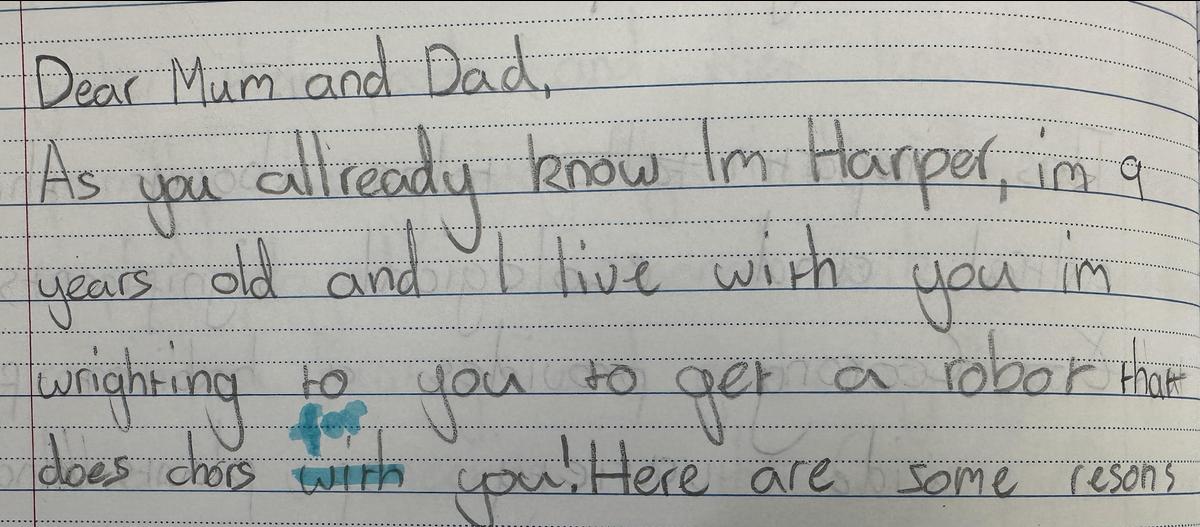 Dear Mum and Dad,
As you allready know Im Harper, im 9
years old and I live with you im
wrighting to you to get a robot that
for
does chors with you! Here are some resons